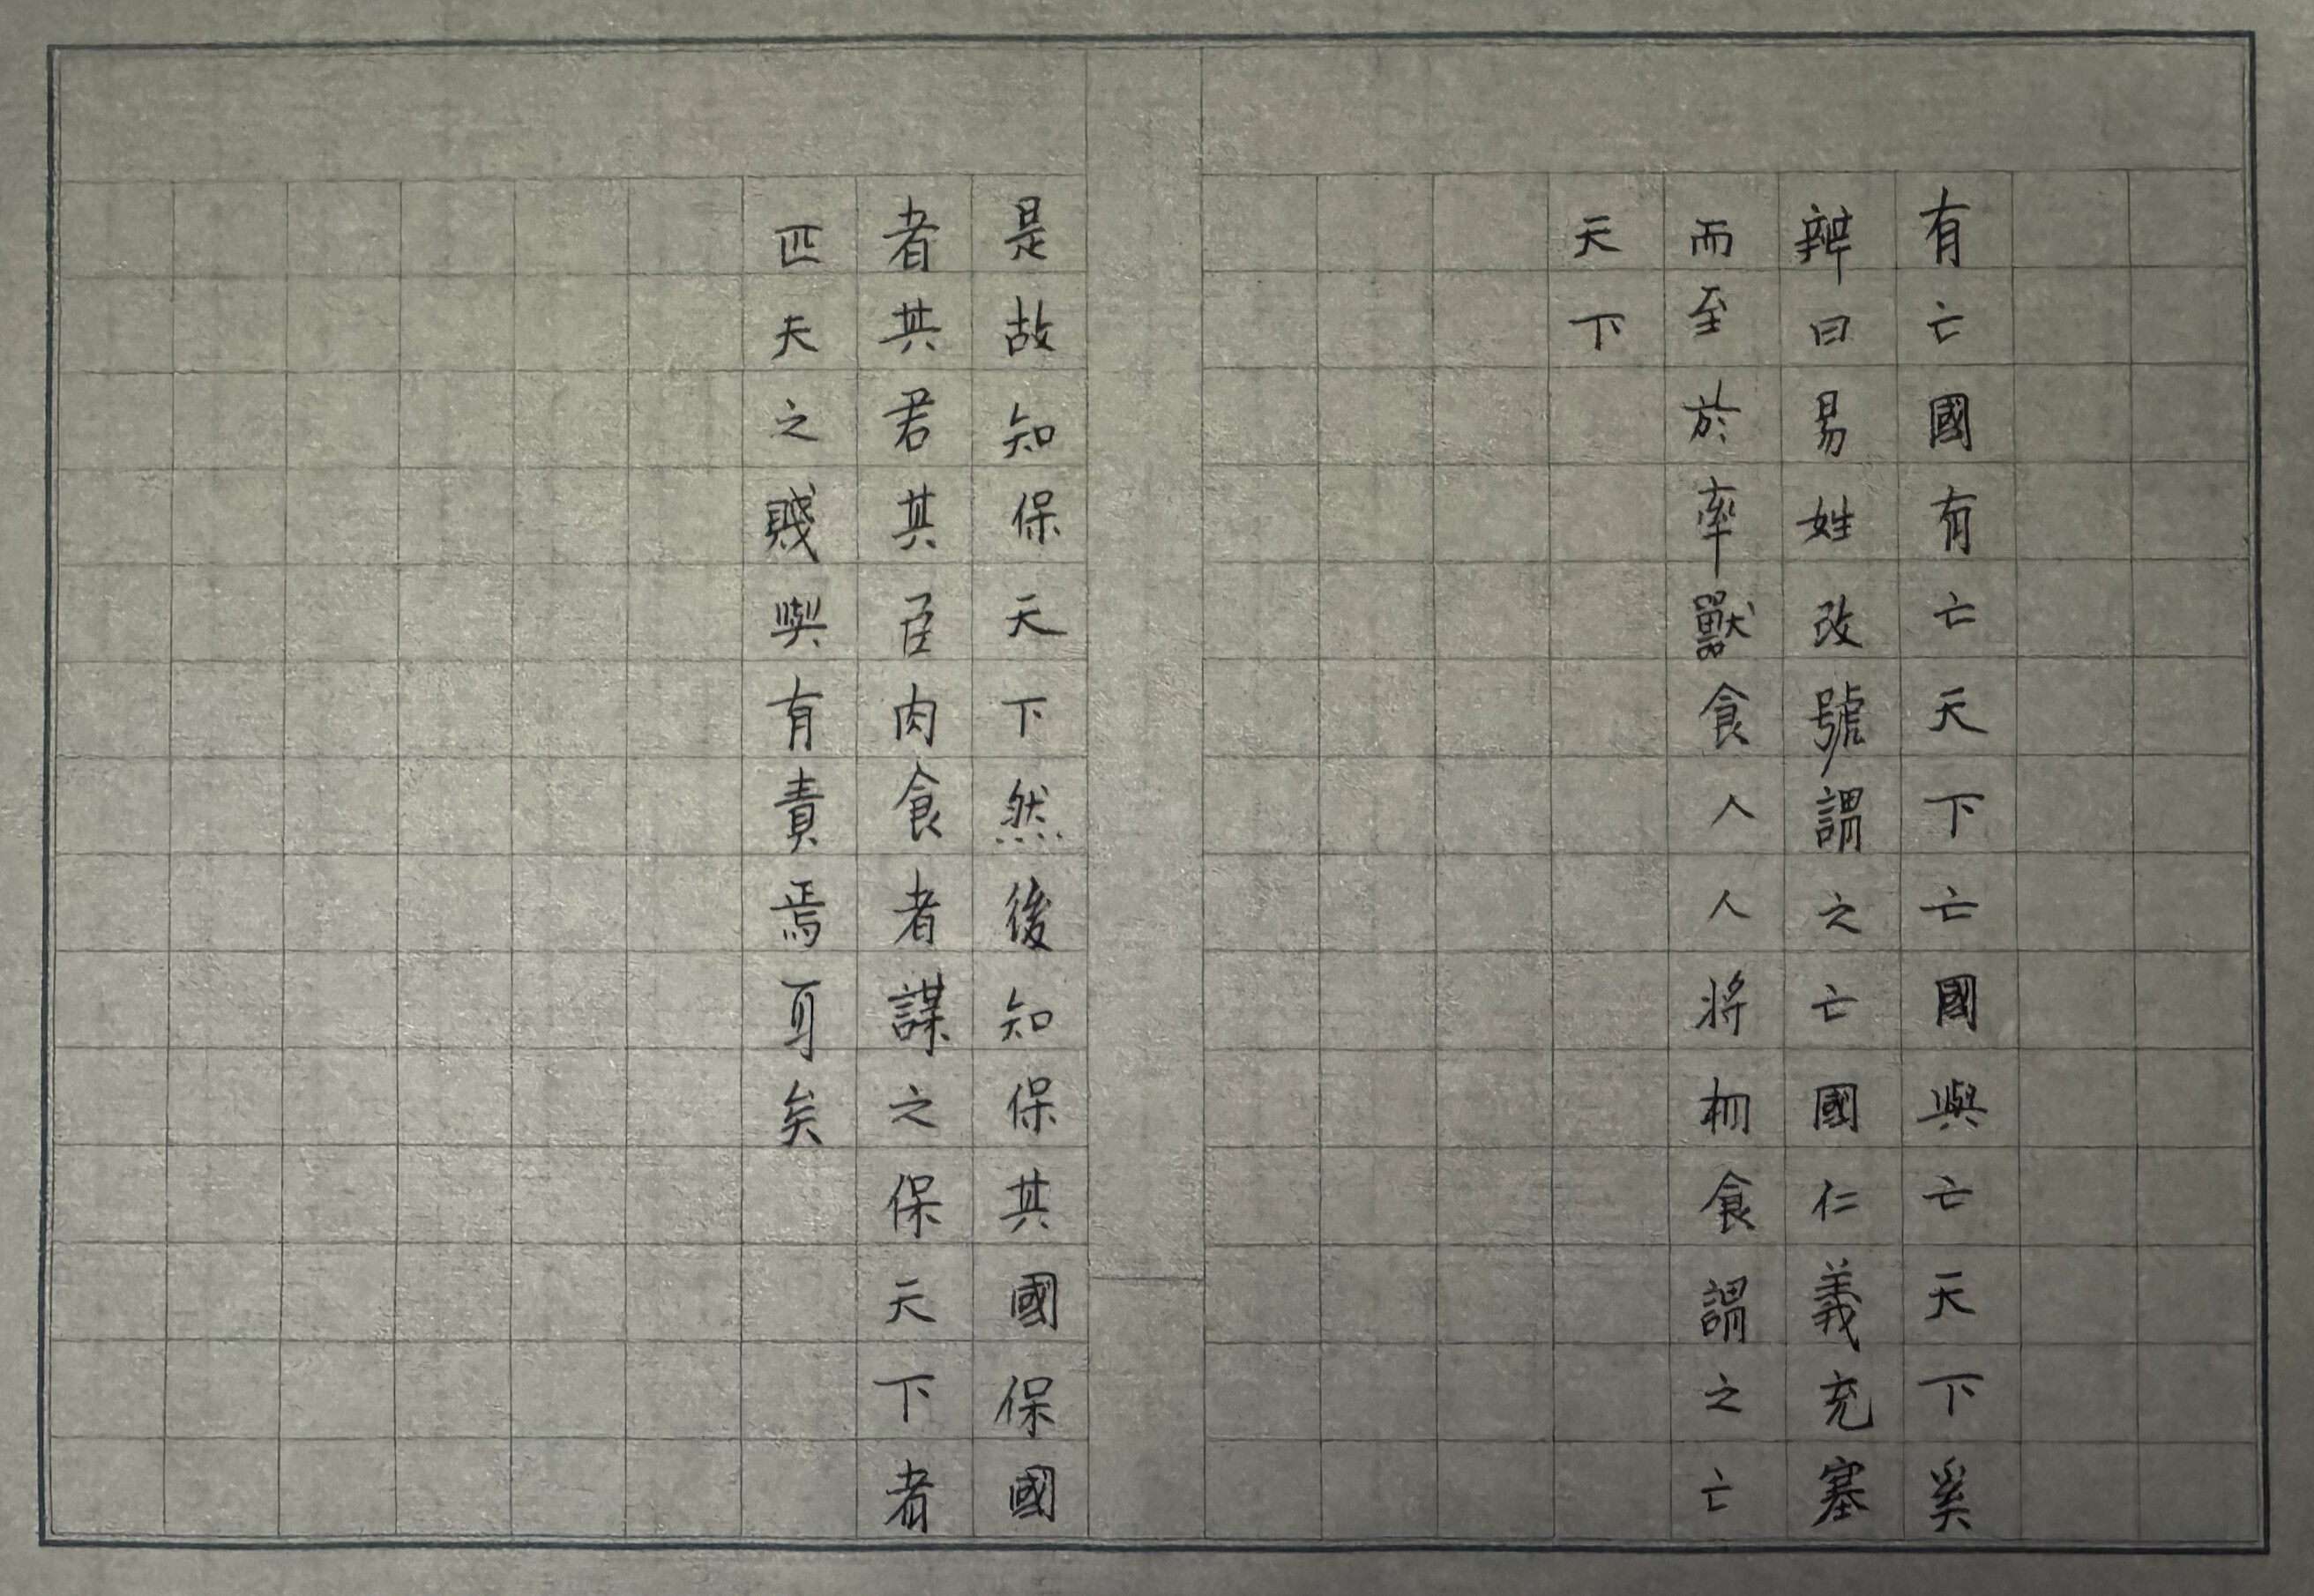 有亡國有亡天下亡國與亡天下奚
辨曰易姓改號謂之亡國仁義充塞
而至於率獸食人人將相食謂之亡
天下
是故知保天下然後知保其國保國
者其君其臣肉食者謀之保天下者
匹夫之賤與有責焉耳矣